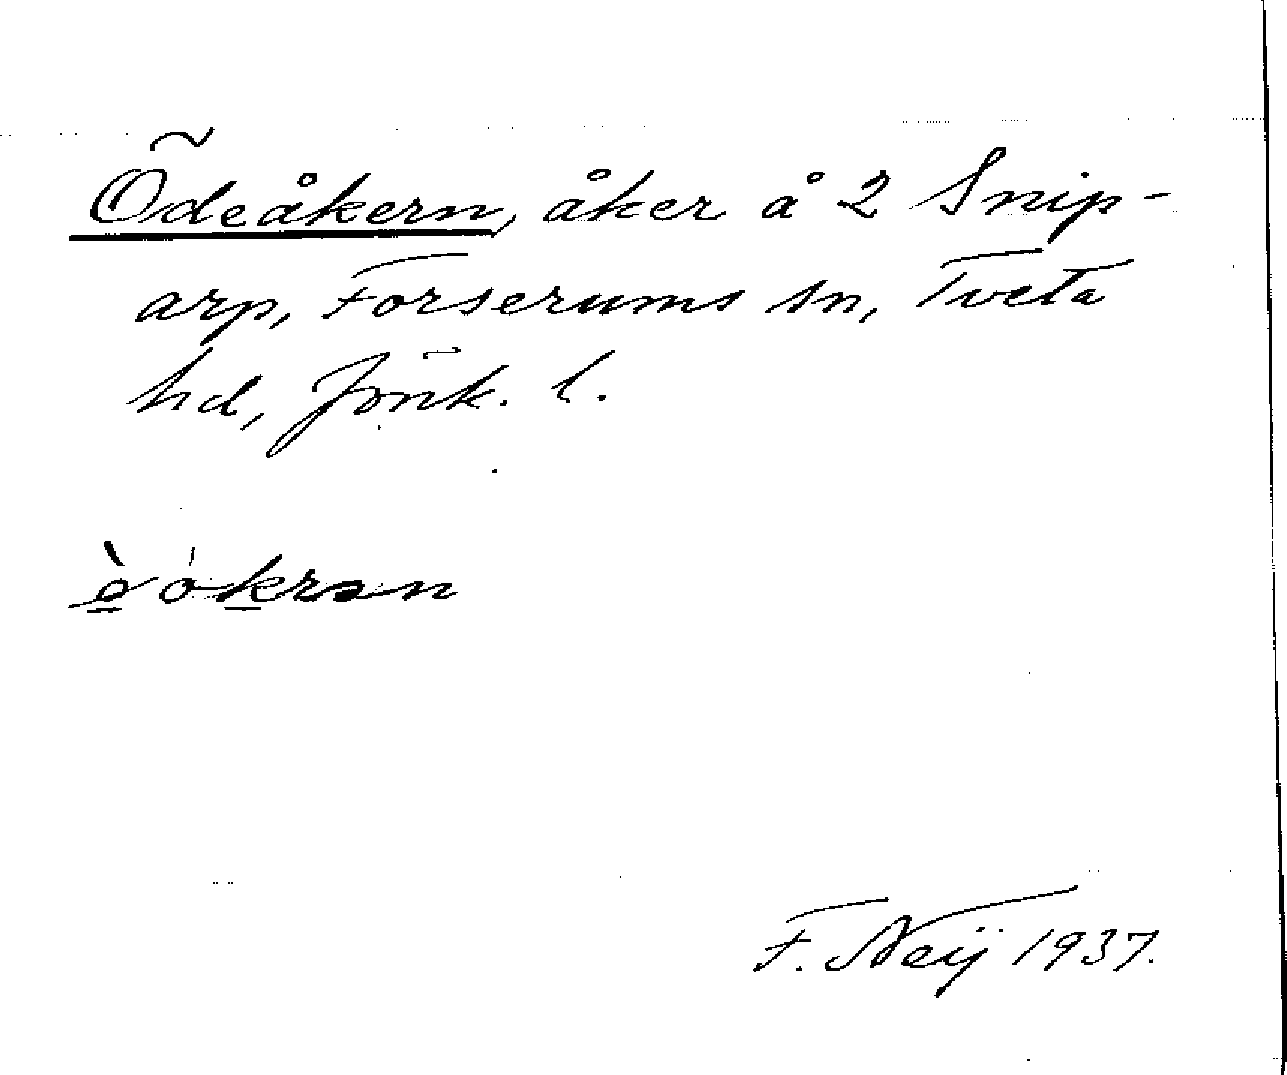 Ödeåkern, åker å 2 Snip-
arp, Forserums sn, Tveta
hd, Jönk. l.
F. Neij 1937.